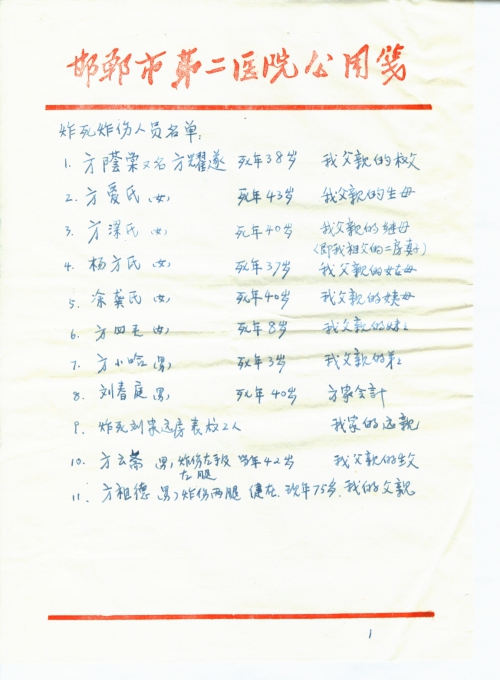 邯郸市第二医院公用笺
炸死炸伤人员名单:
1. 方荫棠又名方耀遂 死年38岁 我父亲的叔父
2. 方爱氏(女) 死年43岁 我父亲的生母
3. 方梁氏(女) 死年40岁 我父亲的继母
(即我祖父的二房妻子)
4. 杨方氏(女) 死年37岁 我父亲的姑母
5. 涂龚氏(女) 死年40岁 我父亲的姨母
6. 方四毛(女) 死年8岁 我父亲的妹妹
7. 方小哈(男) 死年3岁 我父亲的弟弟
8. 刘春庭(男) 死年40岁 方家会计
9. 炸死刘家远房表叔2人 我家的远亲
10. 方云斋(男)炸伤左手及 当年42岁 我父亲的生父
左腿
11. 方祖德(男)炸伤两腿 健在.现年75岁.我的父亲
1